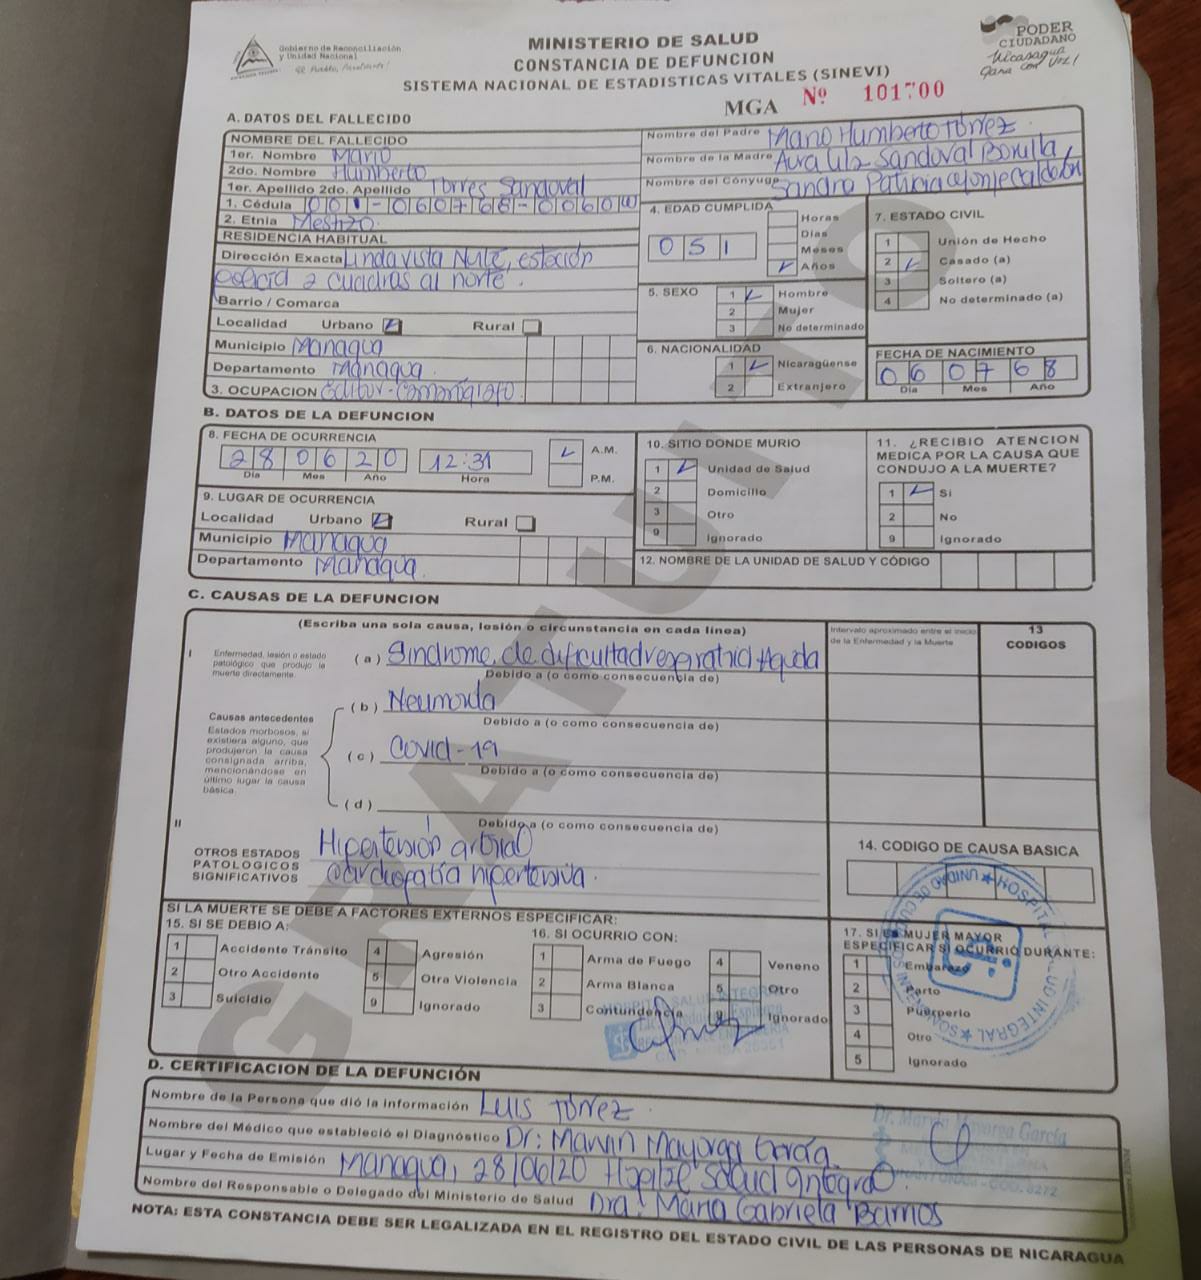 Gobierno de Reconciliación
y Unidad Nacional
El Pueblo, Presidente!
MINISTERIO DE SALUD
CONSTANCIA DE DEFUNCION
SISTEMA NACIONAL DE ESTADISTICAS VITALES (SINEVI)
PODER
CIUDADANO
Nicaragua
Gana con Vos!
MGA Nº 101700
A. DATOS DEL FALLECIDO
NOMBRE DEL FALLECIDO
1er. Nombre Mario
2do. Nombre Humberto
1er. Apellido 2do. Apellido Torres Sandoval
1. Cédula 001-060768-0060W
2. Etnia Mestizo
RESIDENCIA HABITUAL
Dirección Exacta Linda vista Norte, estación
policia 2 cuadras al norte.
Barrio / Comarca
Localidad Urbano Rural
Municipio Managua
Departamento Managua.
3. OCUPACION Editor-Camarógrafo.
Nombre del Padre Mario Humberto Tórrez.
Nombre de la Madre Aura Lila Sandoval Bonilla
Nombre del Cónyuge Sandra Patricia Calderón
4. EDAD CUMPLIDA
051
Horas
Días
Meses
Años
5. SEXO
1 Hombre
2 Mujer
3 No determinado
6. NACIONALIDAD
1 Nicaragüense
2 Extranjero
7. ESTADO CIVIL
1 Unión de Hecho
2 Casado (a)
3 Soltero (a)
4 No determinado (a)
FECHA DE NACIMIENTO
060768
Día Mes Año
B. DATOS DE LA DEFUNCION
8. FECHA DE OCURRENCIA
280620 12:31
Día Mes Año Hora
A.M.
P.M.
9. LUGAR DE OCURRENCIA
Localidad Urbano Rural
Municipio Managua
Departamento Managua.
10. SITIO DONDE MURIO
1 Unidad de Salud
2 Domicilio
3 Otro
9 Ignorado
11. ¿RECIBIO ATENCION
MEDICA POR LA CAUSA QUE
CONDUJO A LA MUERTE?
1 Si
2 No
9 Ignorado
12. NOMBRE DE LA UNIDAD DE SALUD Y CÓDIGO
C. CAUSAS DE LA DEFUNCION
(Escriba una sola causa, lesión o circunstancia en cada línea)
Intervalo aproximado entre el inicio
de la Enfermedad y la Muerte
13
CODIGOS
I
Enfermedad, lesión o estado
patológico que produjo la
muerte directamente.
(a) Sindrome de dificultad respiratoria Aguda
Debido a (o como consecuencia de)
(b) Neumonía
Debido a (o como consecuencia de)
Causas antecedentes
Estados morbosos, si
existiera alguno, que
produjeron la causa
consignada arriba,
mencionándose en
último lugar la causa
básica.
(c) Covid-19
Debido a (o como consecuencia de)
(d)
Debido a (o como consecuencia de)
II
OTROS ESTADOS
PATOLOGICOS
SIGNIFICATIVOS
Hipertensión arterial
Cardiopatía hipertensiva.
14. CODIGO DE CAUSA BASICA
SI LA MUERTE SE DEBE A FACTORES EXTERNOS ESPECIFICAR:
15. SI SE DEBIO A:
1 Accidente Tránsito
2 Otro Accidente
3 Suicidio
4 Agresión
5 Otra Violencia
9 Ignorado
16. SI OCURRIO CON:
1 Arma de Fuego
2 Arma Blanca
3 Contundencia
4 Veneno
5 Otro
9 Ignorado
17. SI ES MUJER MAYOR
ESPECIFICAR SI OCURRIÓ DURANTE:
1 Embarazo
2 Parto
3 Puerperio
4 Otro
5 Ignorado
HOSPITAL SALUD INTEGRAL ★ UNIDAD DE CUIDADOS INTENSIVOS ★
D. CERTIFICACION DE LA DEFUNCIÓN
Nombre de la Persona que dió la información Luis Tórrez.
Nombre del Médico que estableció el Diagnóstico Dr: Marvin Mayorga García.
Dr. Marvin Mayorga García
Lugar y Fecha de Emisión Managua, 28/06/20 Salud Integral.
Nombre del Responsable o Delegado del Ministerio de Salud Dra: Maria Gabriela Barrios
NOTA: ESTA CONSTANCIA DEBE SER LEGALIZADA EN EL REGISTRO DEL ESTADO CIVIL DE LAS PERSONAS DE NICARAGUA
GRATUITO